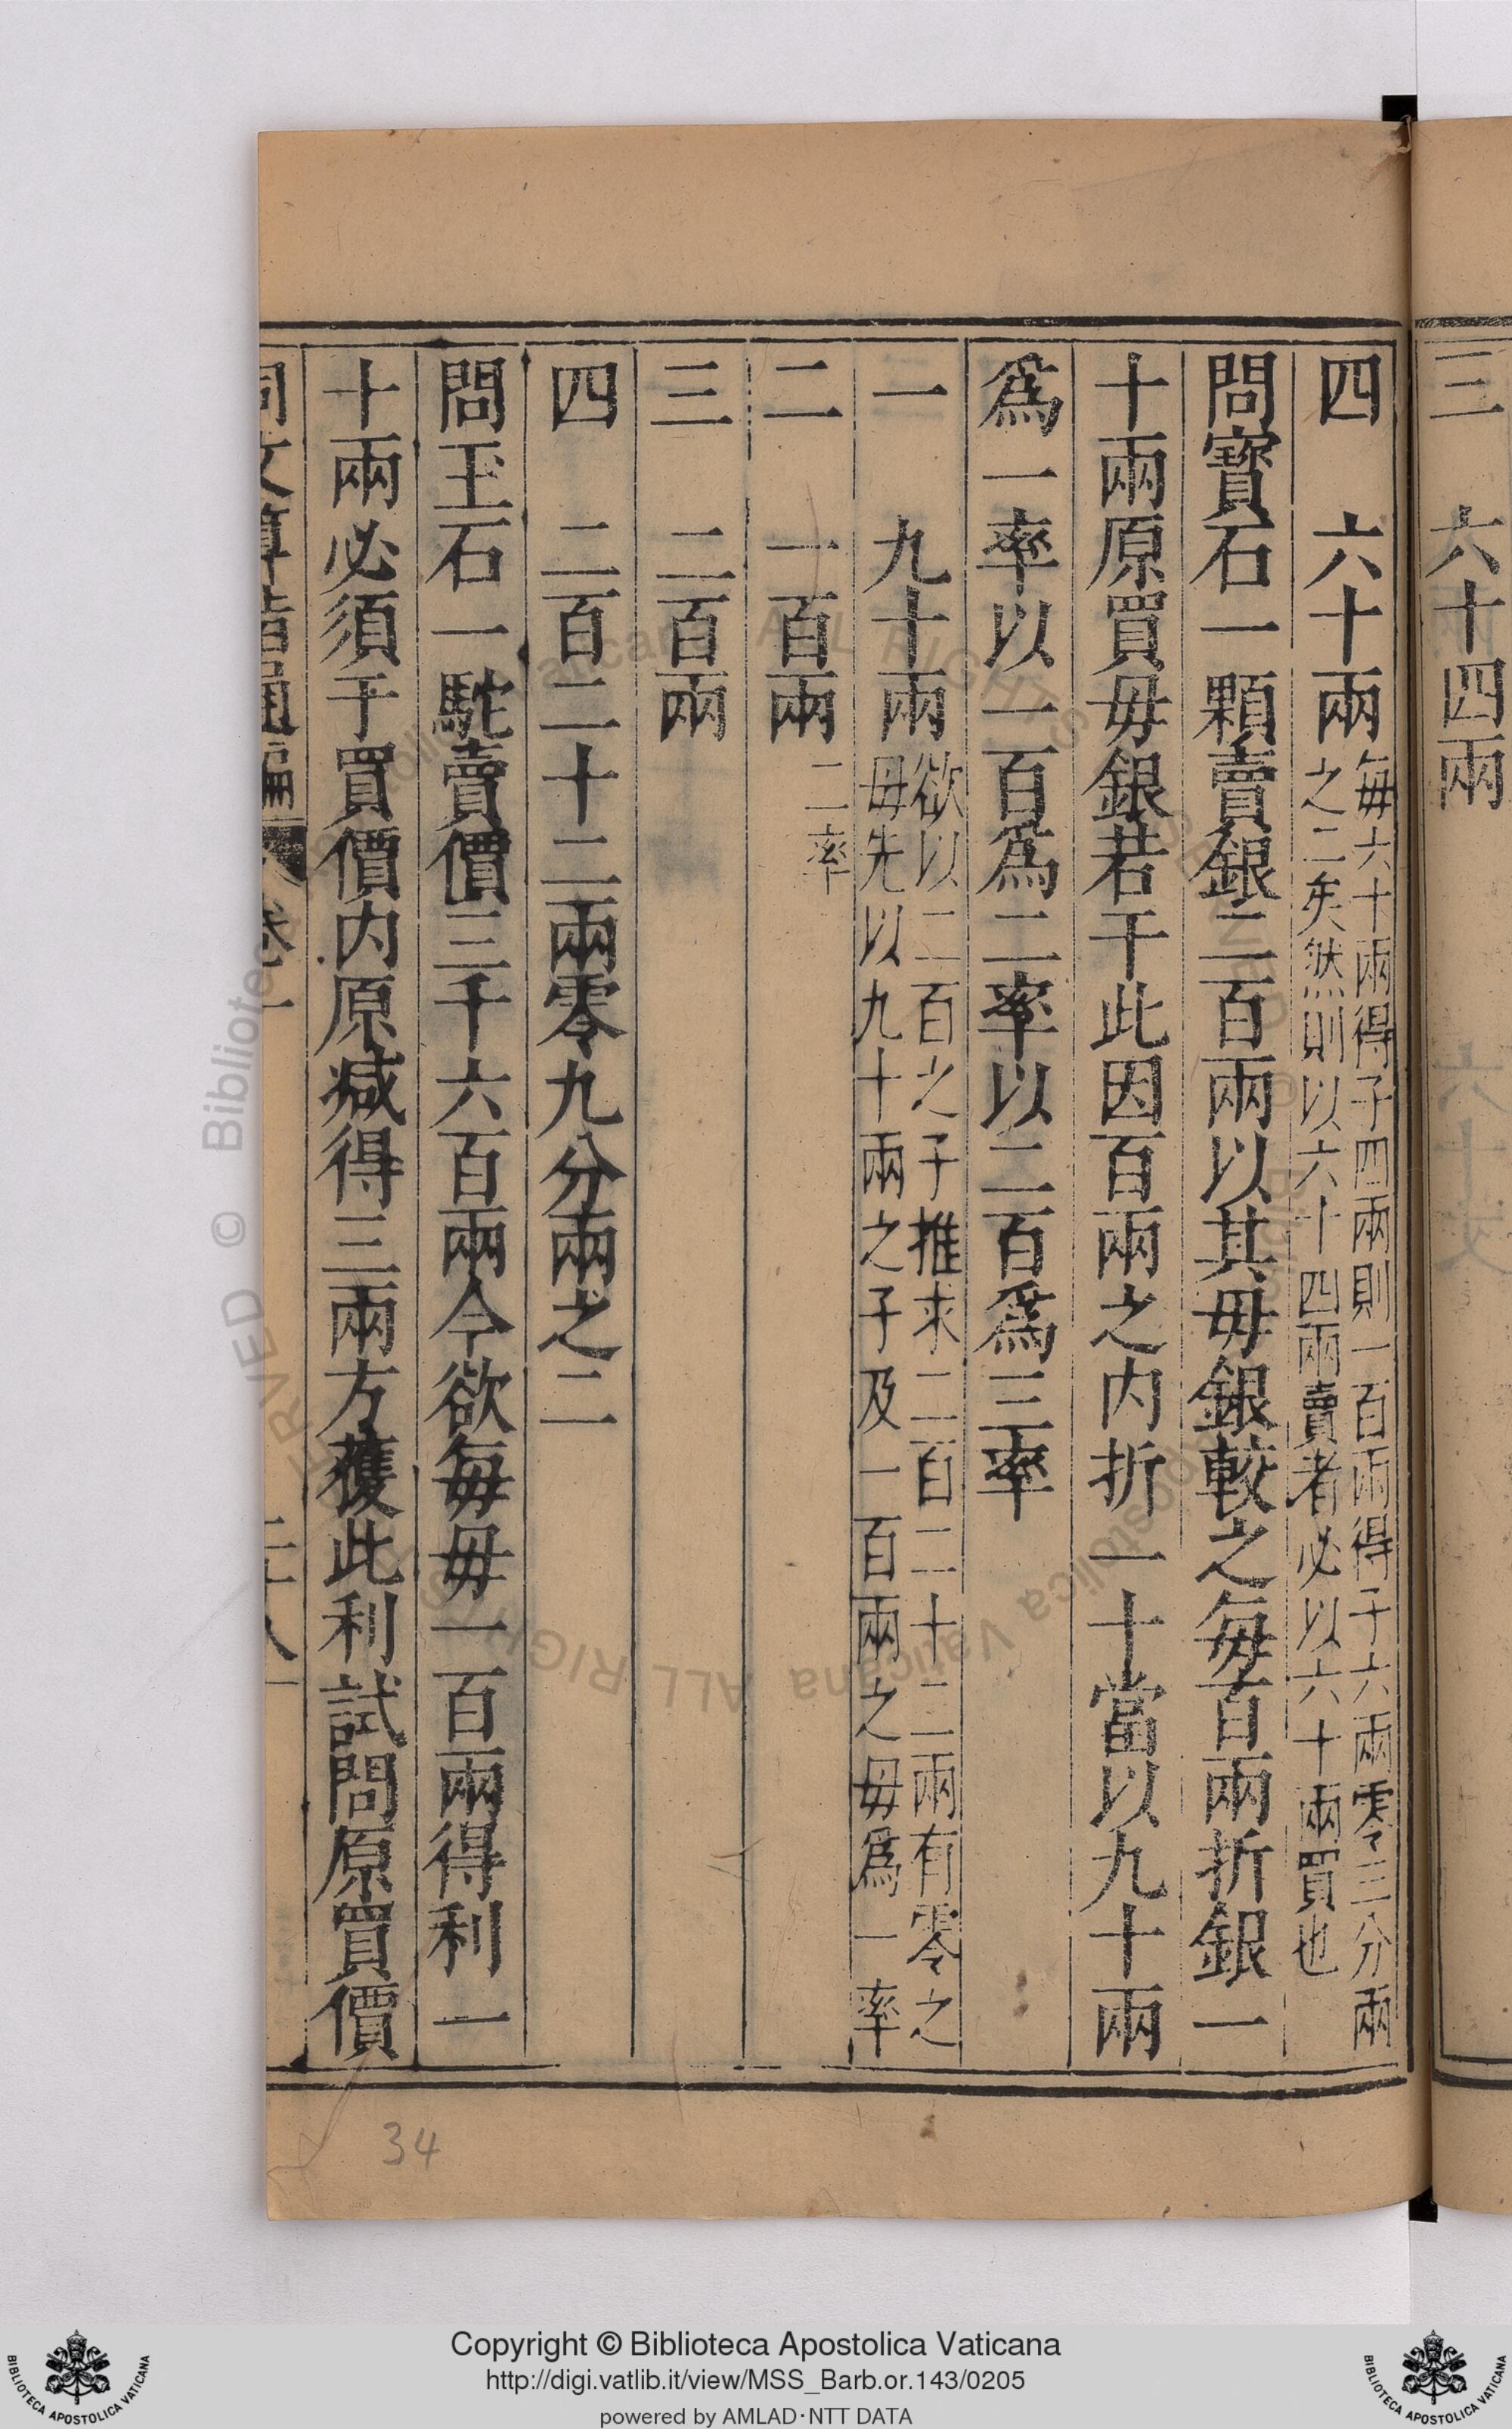 三　六十四兩
四　六十兩
每六十兩得子四兩則一百兩得子六兩零三分兩
之二矣然則以六十四兩賣者必以六十兩買也
問寶石一顆賣銀二百兩以其毋銀較之每百兩折銀一
十兩原買毋銀若干此因百兩之内折一十當以九十兩
爲一率以一百爲二率以二百爲三率
一　九十兩
欲以二百之子推求二百二十二兩有零之
毋先以九十兩之子及一百兩之毋爲一率
二率
二　一百兩
三　二百兩
四　二百二十二兩零九分兩之二
問玉石一駝賣價三千六百兩今欲每毋一百兩得利一
十兩必須于買價内原减得三兩方獲此利試問原買價
同文算指通編 卷一 二十八
34
Copyright © Biblioteca Apostolica Vaticana
http://digi.vatlib.it/view/MSS_Barb.or.143/0205
powered by AMLAD·NTT DATA
BIBLIOTECA APOSTOLICA VATICANA
BIBLIOTECA APOSTOLICA VATICANA